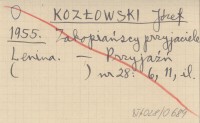 O KOZŁOWSKI Józef
1955. Zakopiańscy przyjaciele
Lenina. — Przyjaźń
( ) nr 28: 6, 11, il.